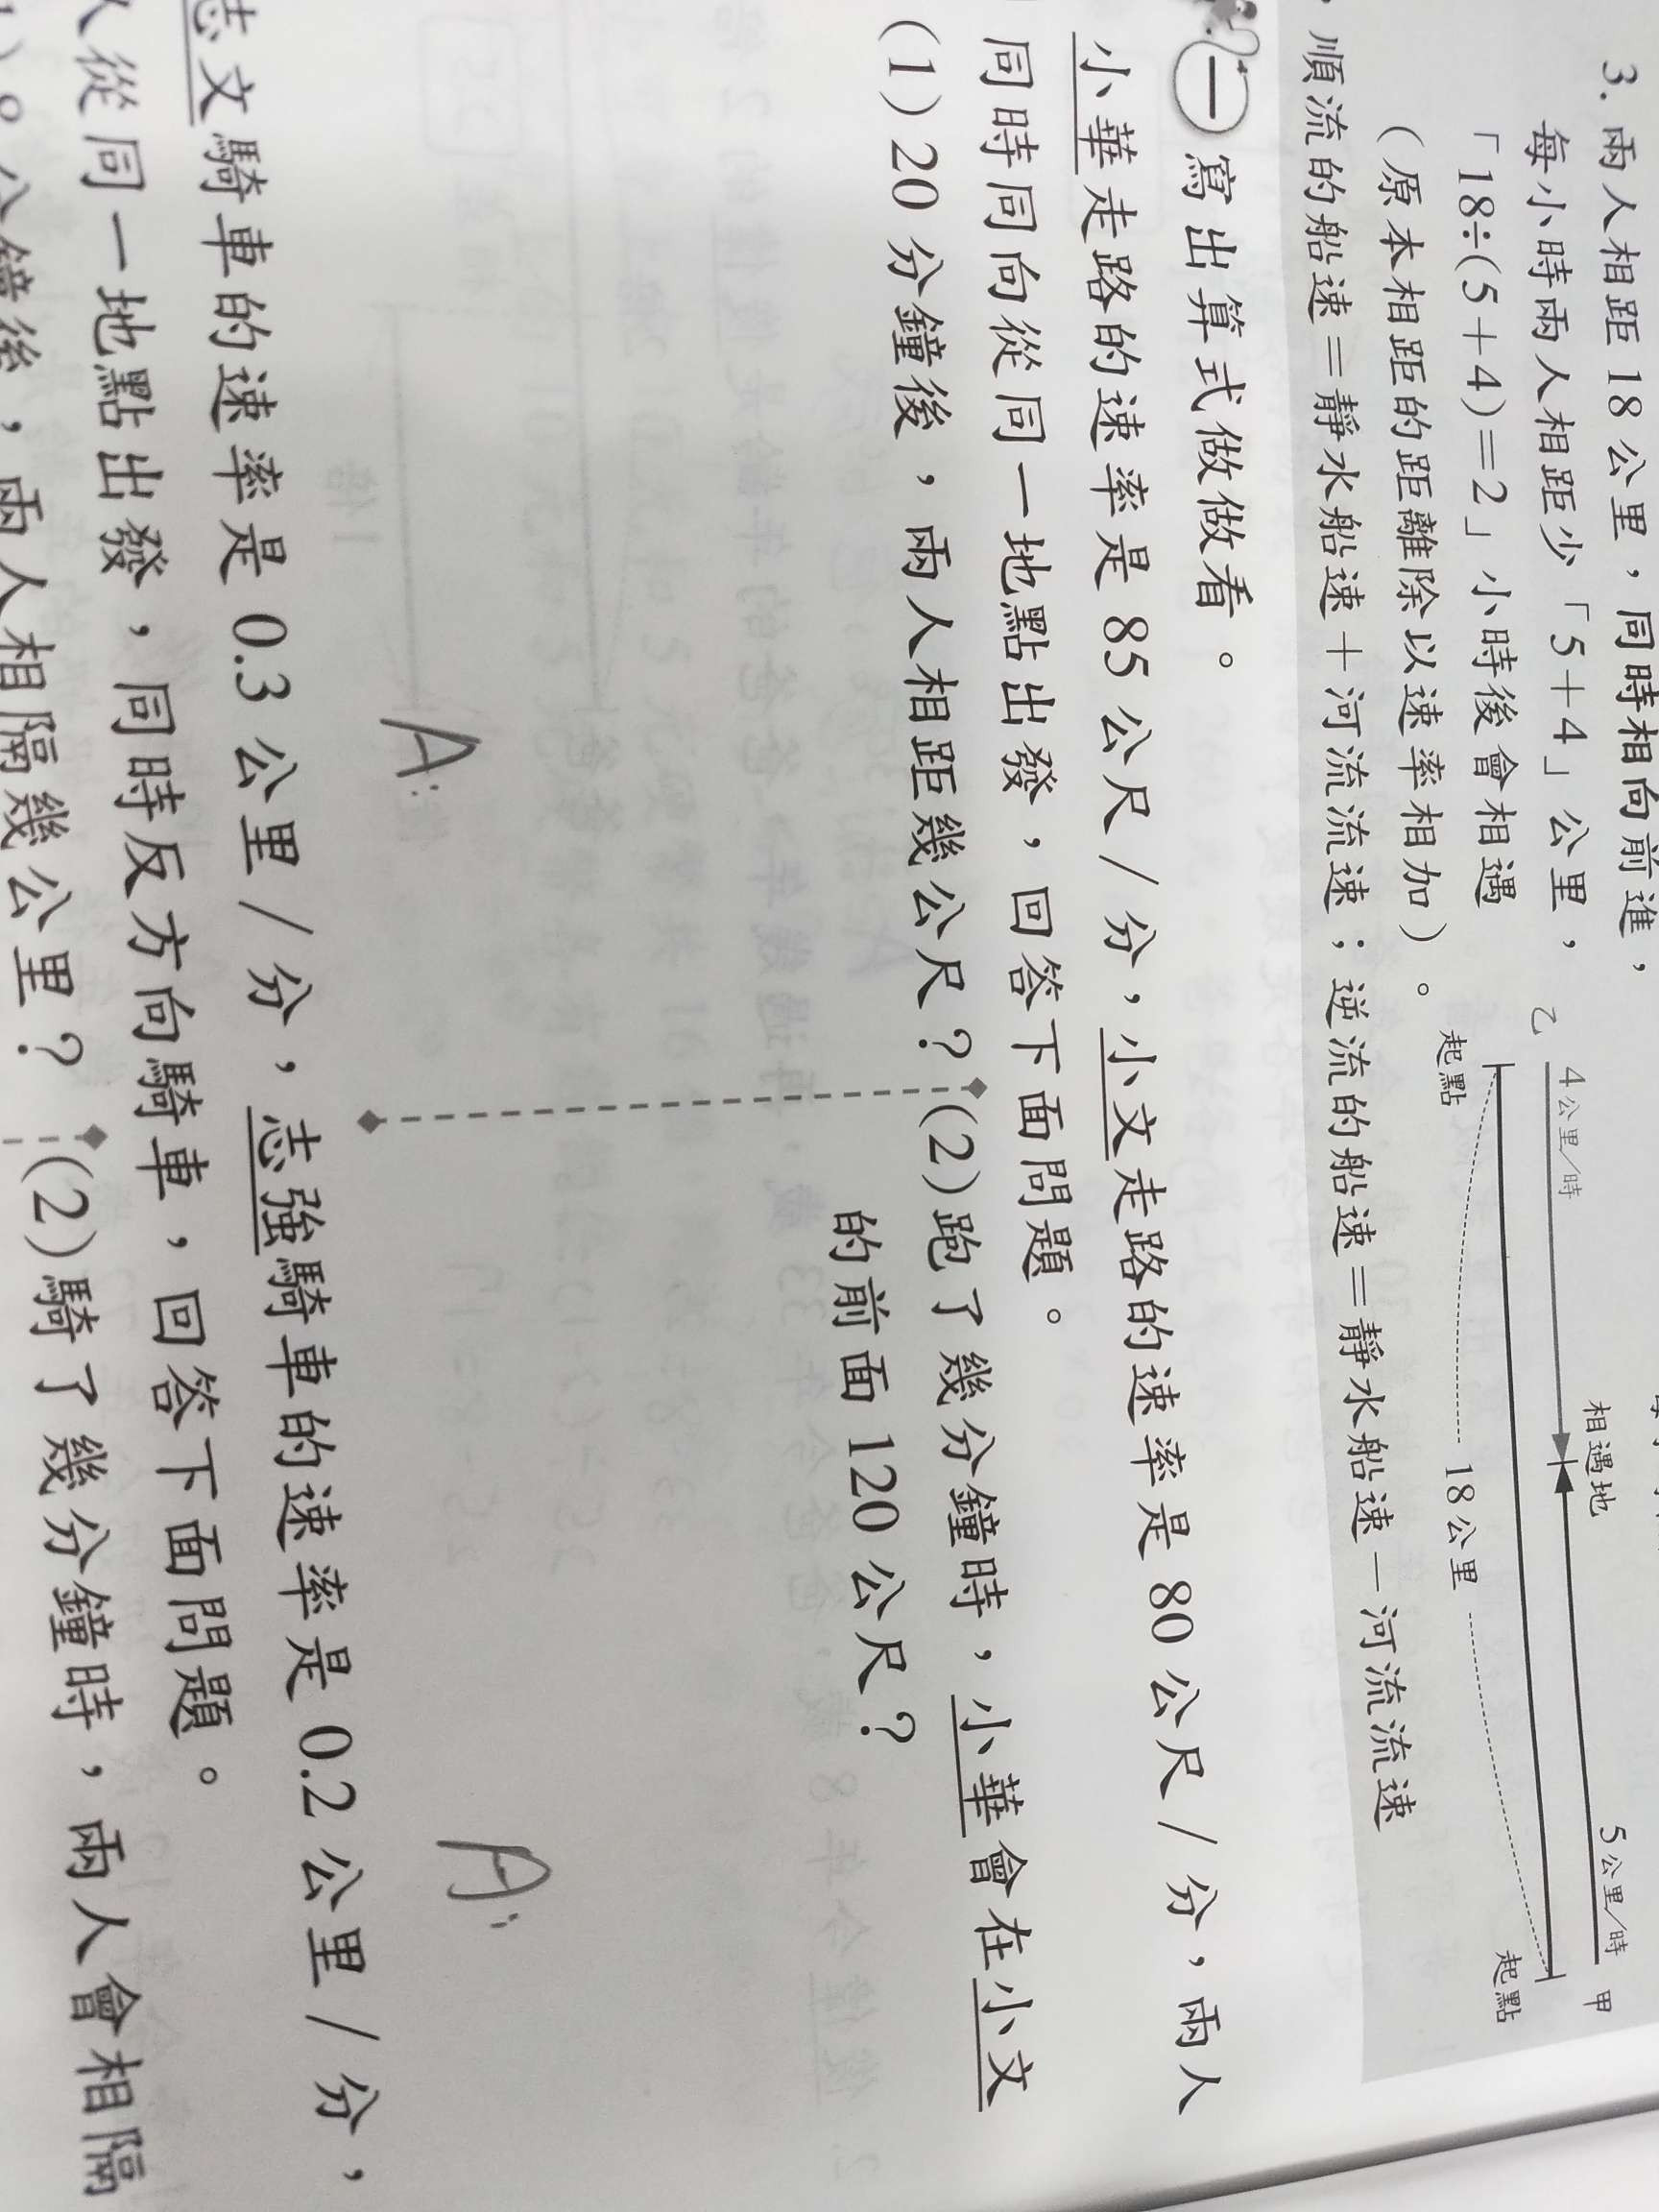 3. 兩人相距 18 公里，同時相向前進，
每小時兩人相距少「5＋4」公里，
「18÷(5＋4)＝2」小時後會相遇
（原本相距的距離除以速率相加）。
乙 4 公里/時 相遇地 5 公里/時 甲
起點 18 公里 起點
順流的船速＝靜水船速＋河流流速；逆流的船速＝靜水船速－河流流速
一 寫出算式做做看。
小華走路的速率是 85 公尺/分，小文走路的速率是 80 公尺/分，兩人
同時同向從同一地點出發，回答下面問題。
(1) 20 分鐘後，兩人相距幾公尺？
(2)跑了幾分鐘時，小華會在小文
的前面 120 公尺？
A:
A:
志文騎車的速率是 0.3 公里/分，志強騎車的速率是 0.2 公里/分，
人從同一地點出發，同時反方向騎車，回答下面問題。
8 公鐘後，兩人相隔幾公里？
(2)騎了幾分鐘時，兩人會相隔